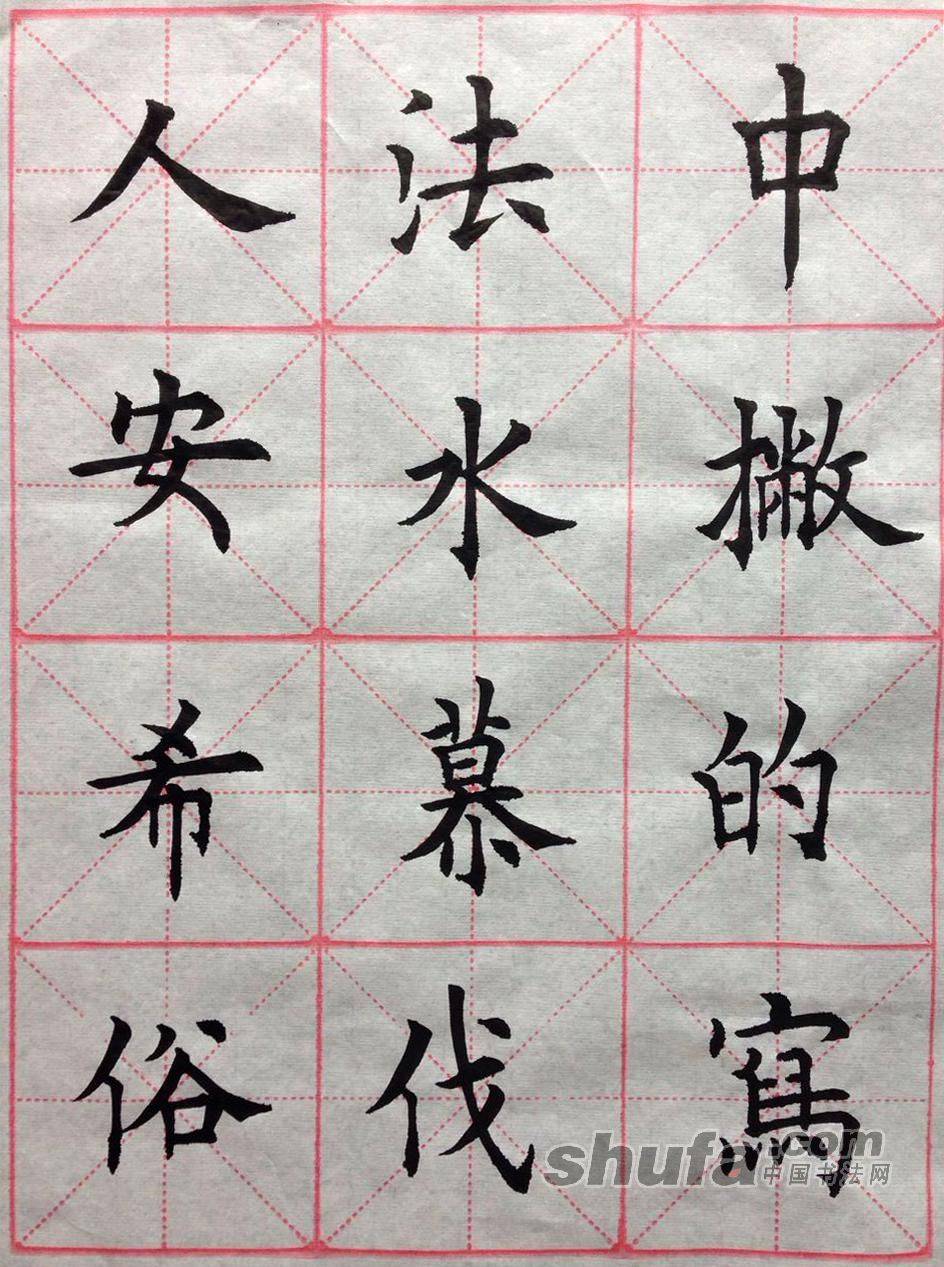 中撇的寫
法水慕伐
人安希俗
shufa.com
中国书法网